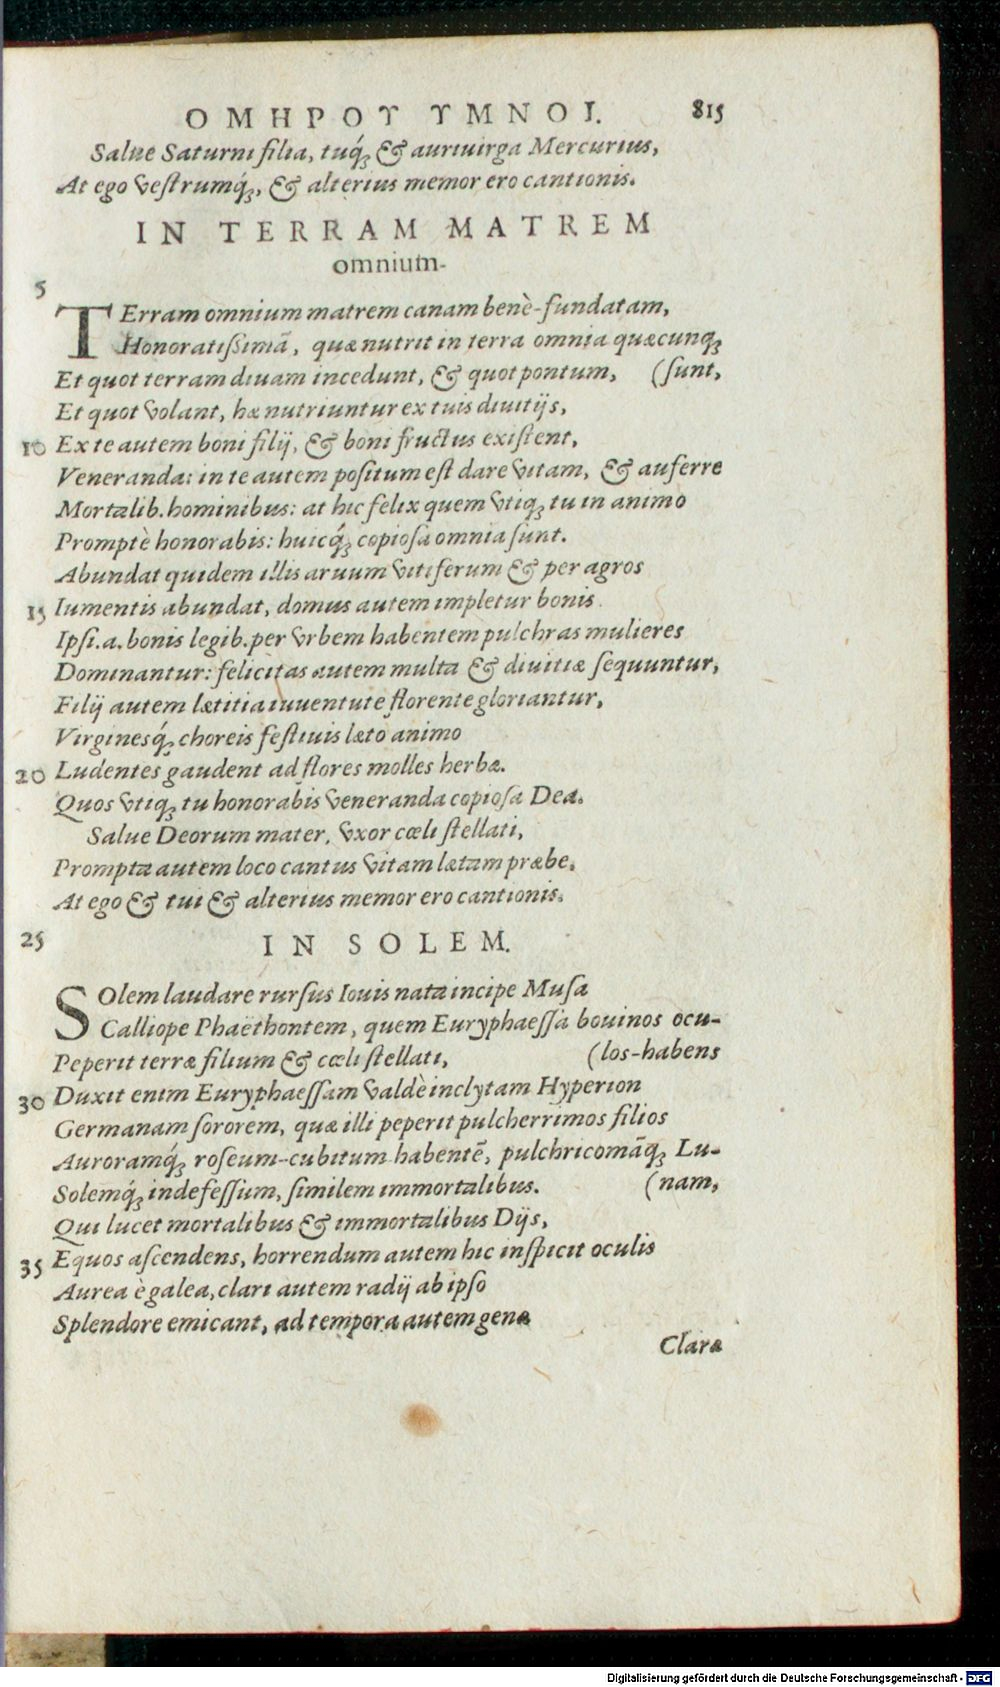 ΟΜΗΡΟΥ ΥΜΝΟΙ. 815
Salue Saturni filia, tuq́; & auriuirga Mercurius,
At ego vestrumq́;, & alterius memor ero cantionis.
IN TERRAM MATREM
omnium.
5
TErram omnium matrem canam benè-fundatam,
Honoratißimā, quæ nutrit in terra omnia quæcunq;
Et quot terram diuam incedunt, & quot pontum, (sunt,
Et quot volant, hæ nutriuntur ex tuis diuitijs,
10 Ex te autem boni filij, & boni fructus existent,
Veneranda: in te autem positum est dare vitam, & auferre
Mortalib. hominibus: at hic felix quem vtiq; tu in animo
Promptè honorabis: huicq́; copiosa omnia sunt.
Abundat quidem illis aruum vitiferum & per agros
15 Iumentis abundat, domus autem impletur bonis
Ipsi.a. bonis legib. per vrbem habentem pulchras mulieres
Dominantur: felicitas autem multa & diuitiæ sequuntur,
Filij autem lætitia iuuentute florente gloriantur,
Virginesq́; choreis festiuis læto animo
20 Ludentes gaudent ad flores molles herbæ.
Quos vtiq; tu honorabis veneranda copiosa Dea.
Salue Deorum mater, vxor cœli stellati,
Prompta autem loco cantus vitam lætam præbe.
At ego & tui & alterius memor ero cantionis.
25 IN SOLEM.
SOlem laudare rursus Iouis nata incipe Musa
Calliope Phaëthontem, quem Euryphaessa bouinos ocu-
Peperit terræ filium & cœli stellati, (los-habens
30 Duxit enim Euryphaessam valdè inclytam Hyperion
Germanam sororem, quæ illi peperit pulcherrimos filios
Auroramq́; roseum-cubitum habentē, pulchricomāq; Lu-
Solemq́; indefessum, similem immortalibus. (nam,
Qui lucet mortalibus & immortalibus Dijs,
35 Equos ascendens, horrendum autem hic inspicit oculis
Aurea è galea, clari autem radij ab ipso
Splendore emicant, ad tempora autem genæ
Claræ
Digitalisierung gefördert durch die Deutsche Forschungsgemeinschaft - DFG